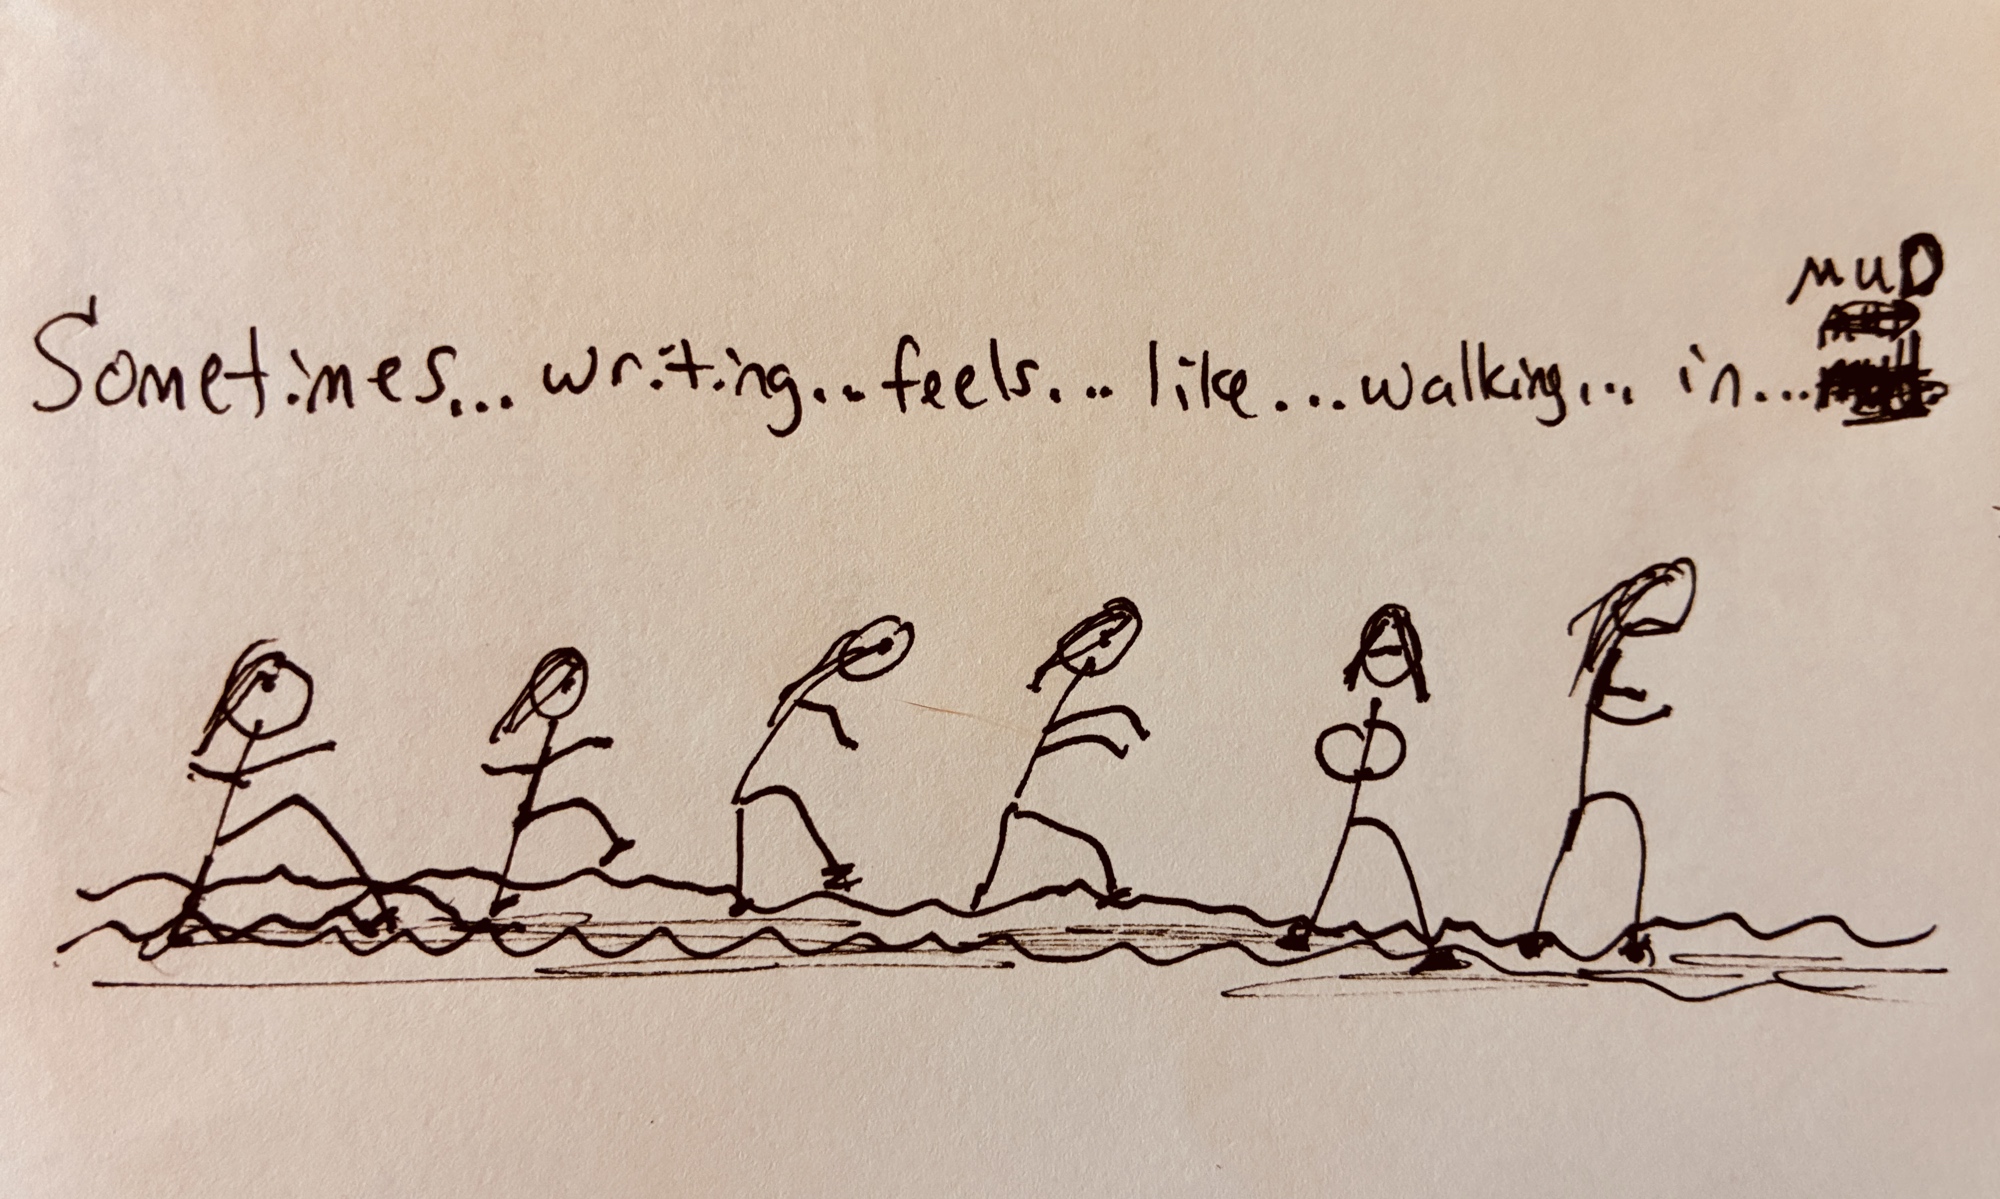 Sometimes... writing... feels... like... walking... in...
MUD